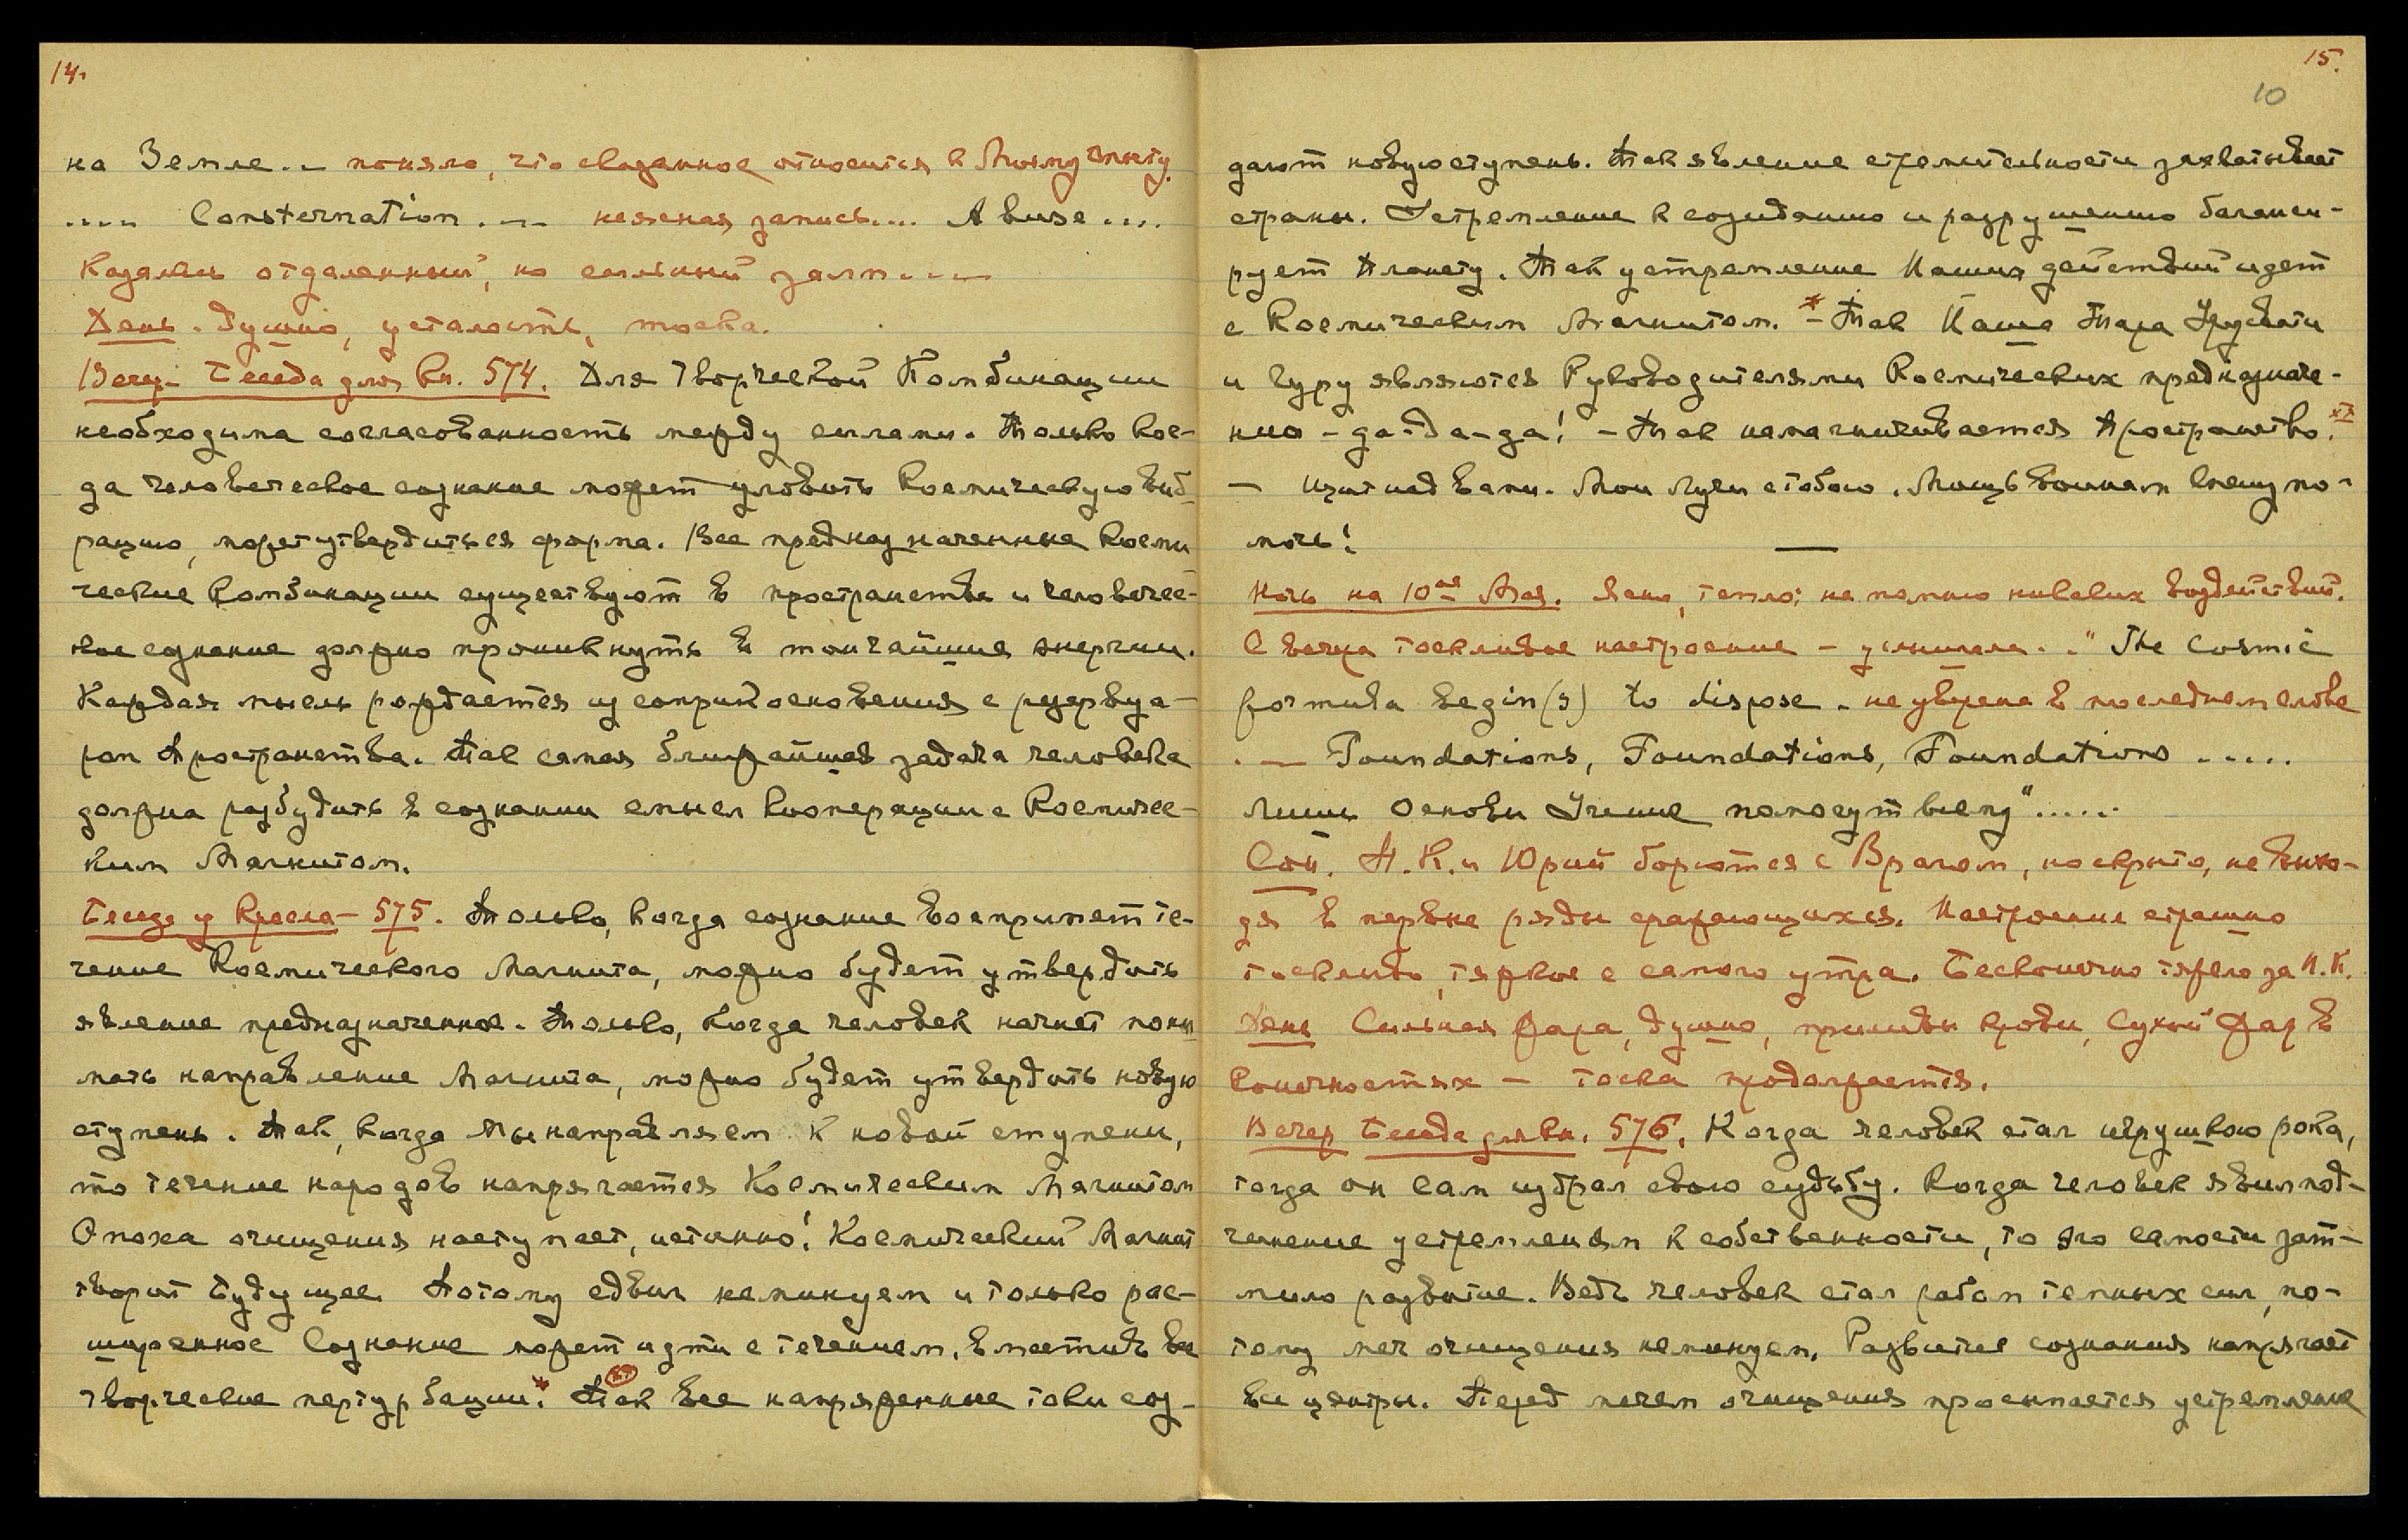 14.
на Земле... поняла, что сказанное относится к Моему опыту.
.... Consternation .... неясная запись.... A визе ....
Казались отдаленный, но сильный залп....
День. Душно, усталость, тоска.
Вечер - Беседа для кн. 574. Для Творческой Комбинации
необходима согласованность между силами. Только ког-
да человеческое сознание может уловить Космическую виб-
рацию, может утвердиться форма. Все предназначенные Косми
ческие Комбинации существуют в пространстве и человечес-
кое сознание должно проникнуть в тончайшие энергии.
Каждая мысль рождается из соприкосновения с резервуа-
ром Пространства. Так самая ближайшая задача человека
должна разбудить в сознании смысл Кооперации с Космичес-
ким Магнитом.
Беседа у Кресла - 575. Только, когда сознание воспримет те-
чение Космического Магнита, можно будет утвердить
явление предназначенное. Только, когда человек начнет пони
мать направление Магнита, можно будет утвердить новую
ступень. Так, когда Мы направляем к новой ступени,
то течение народов напрягается Космическим Магнитом
Эпоха очищения наступает, истинно! Космический Магнит
творит Будущее. Потому сдвиг неминуем и только рас-
ширенное Сознание может идти с течением, вместить все
творческие пертурбации.* Так все напряженные токи соз-
15.
10
дают новую ступень. Так явление стремительности захватывает
страны. Устремление к созиданию и разрушению баланси-
рует Планету. Так устремление Наших действий идет
с Космическим Магнитом.* - Так Наша Тара Урусвати
и Гуру являются Руководителями Космических предназначе-
ний - да-да-да! - Так намагничивается Пространство.
- Щит над вами. Мои Лучи с тобою. Мощь Воинам Спешу по-
мочь!
Ночь на 10ое Мая. Ясно, тепло; не помню никаких воздействий.
С вечера тоскливое настроение - услышала.. "The Cosmic
formula begin(s) to dispose. не уверена в последнем слове
. — Foundations, Foundations, Foundations .....
Лишь Основы Учение помогут всему".....
Сон. Н.К. и Юрий борются с Врагом, но скрыто, не выхо-
дя в первые ряды сражающихся. Настроение страшно
тоскливо, тяжкое с самого утра. Бесконечно тяжело за Н.К.
День Сильная жара, душно, приливы крови, Сухой Жар в
Конечностях - тоска продолжается.
Вечер Беседа для кн. 576. Когда человек стал игрушкою рока,
тогда он сам избрал свою судьбу. Когда человек явил под-
чинение устремленьям к собственности, то эго самости зат-
мило развитие. Ведь человек стал рабом темных сил, по-
тому меч очищения неминуем. Развитие сознания напрягает
все центры. Перед мечем очищения просыпается устремление